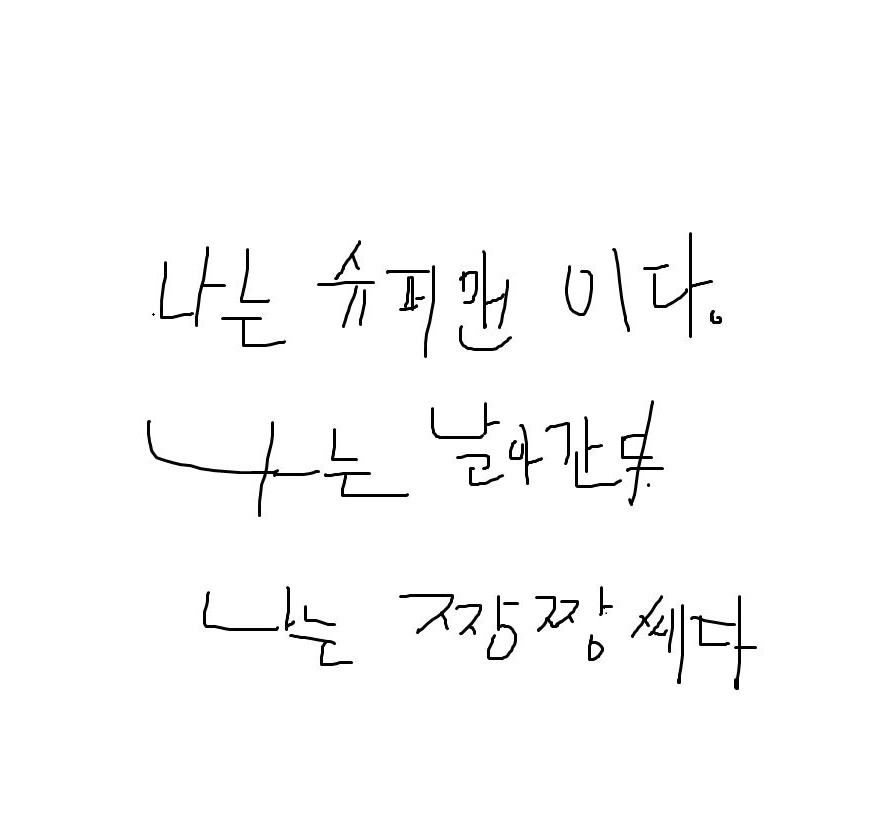 나는 슈퍼맨 이다.
나는 날아간다.
나는 짱짱 쎄다